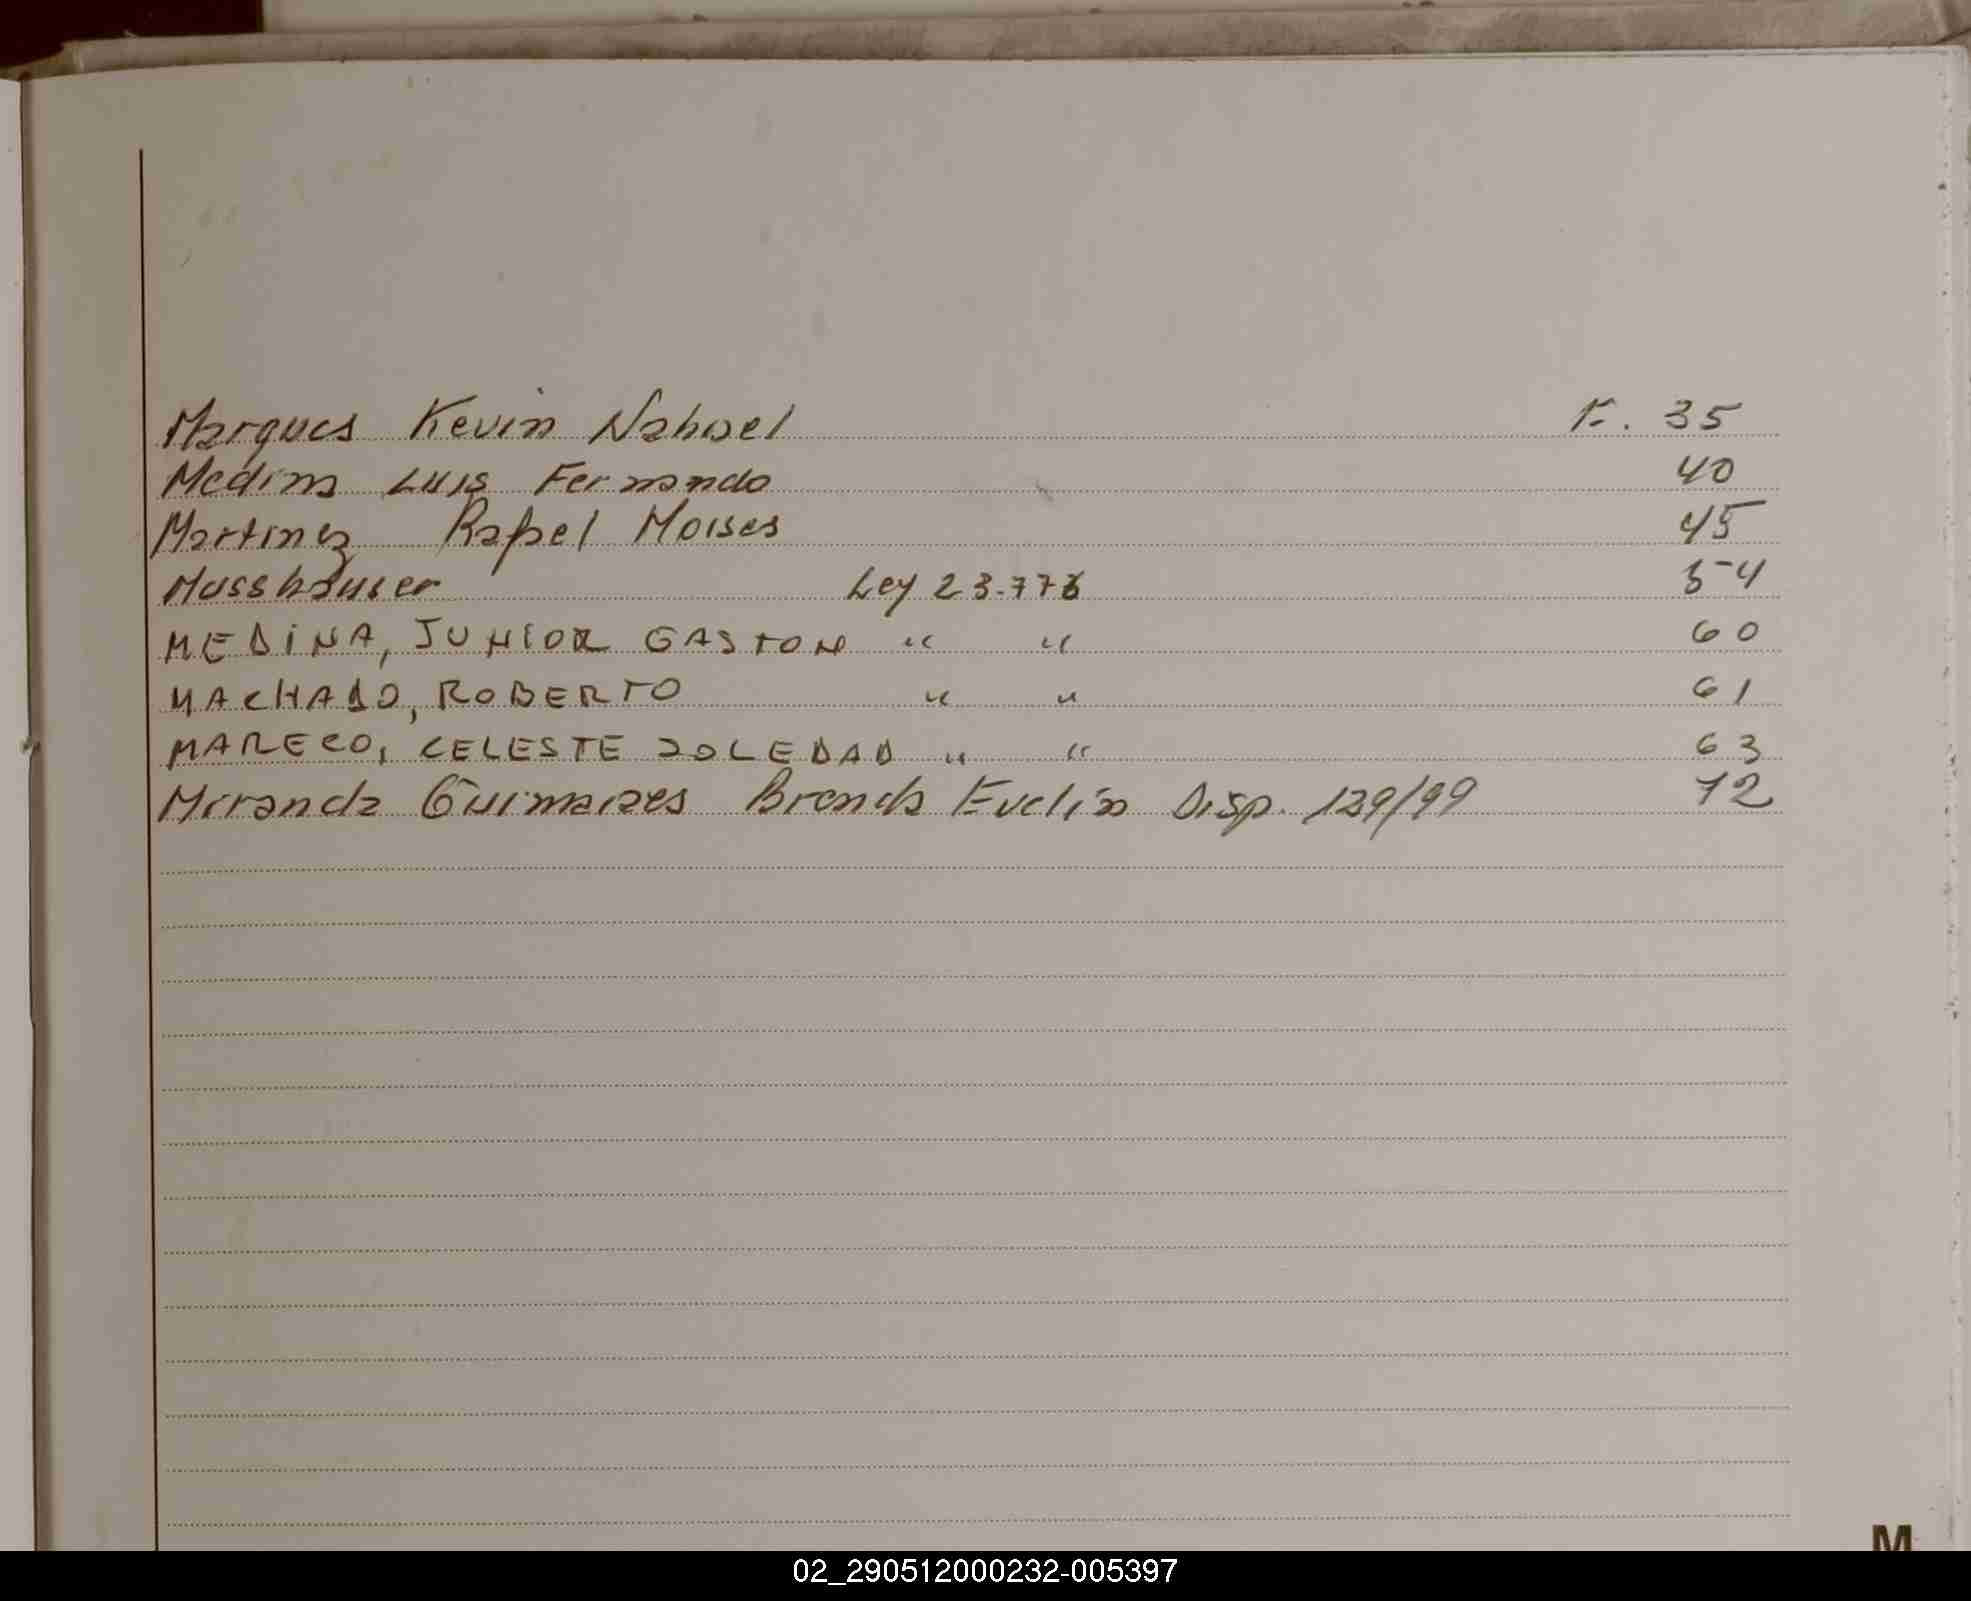 Marques Kevin Nahuel F. 35
Medina Luis Fernando 40
Martinez Rafael Moises 45
Musshauser Ley 23.776 54
MEDINA, JUNIOR GASTON " " 60
MACHADO, ROBERTO " " 61
MARECO, CELESTE SOLEDAD " " 63
Miranda Guimaraes Brenda Evelin Disp. 139/99 72
M
02_290512000232-005397